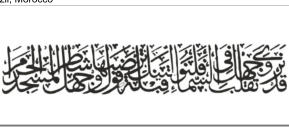 zil, Morocco
قد نرى تقلب وجهك في السماء فلنولينك قبلة ترضاها فول وجهك شطر المسجد الحرام